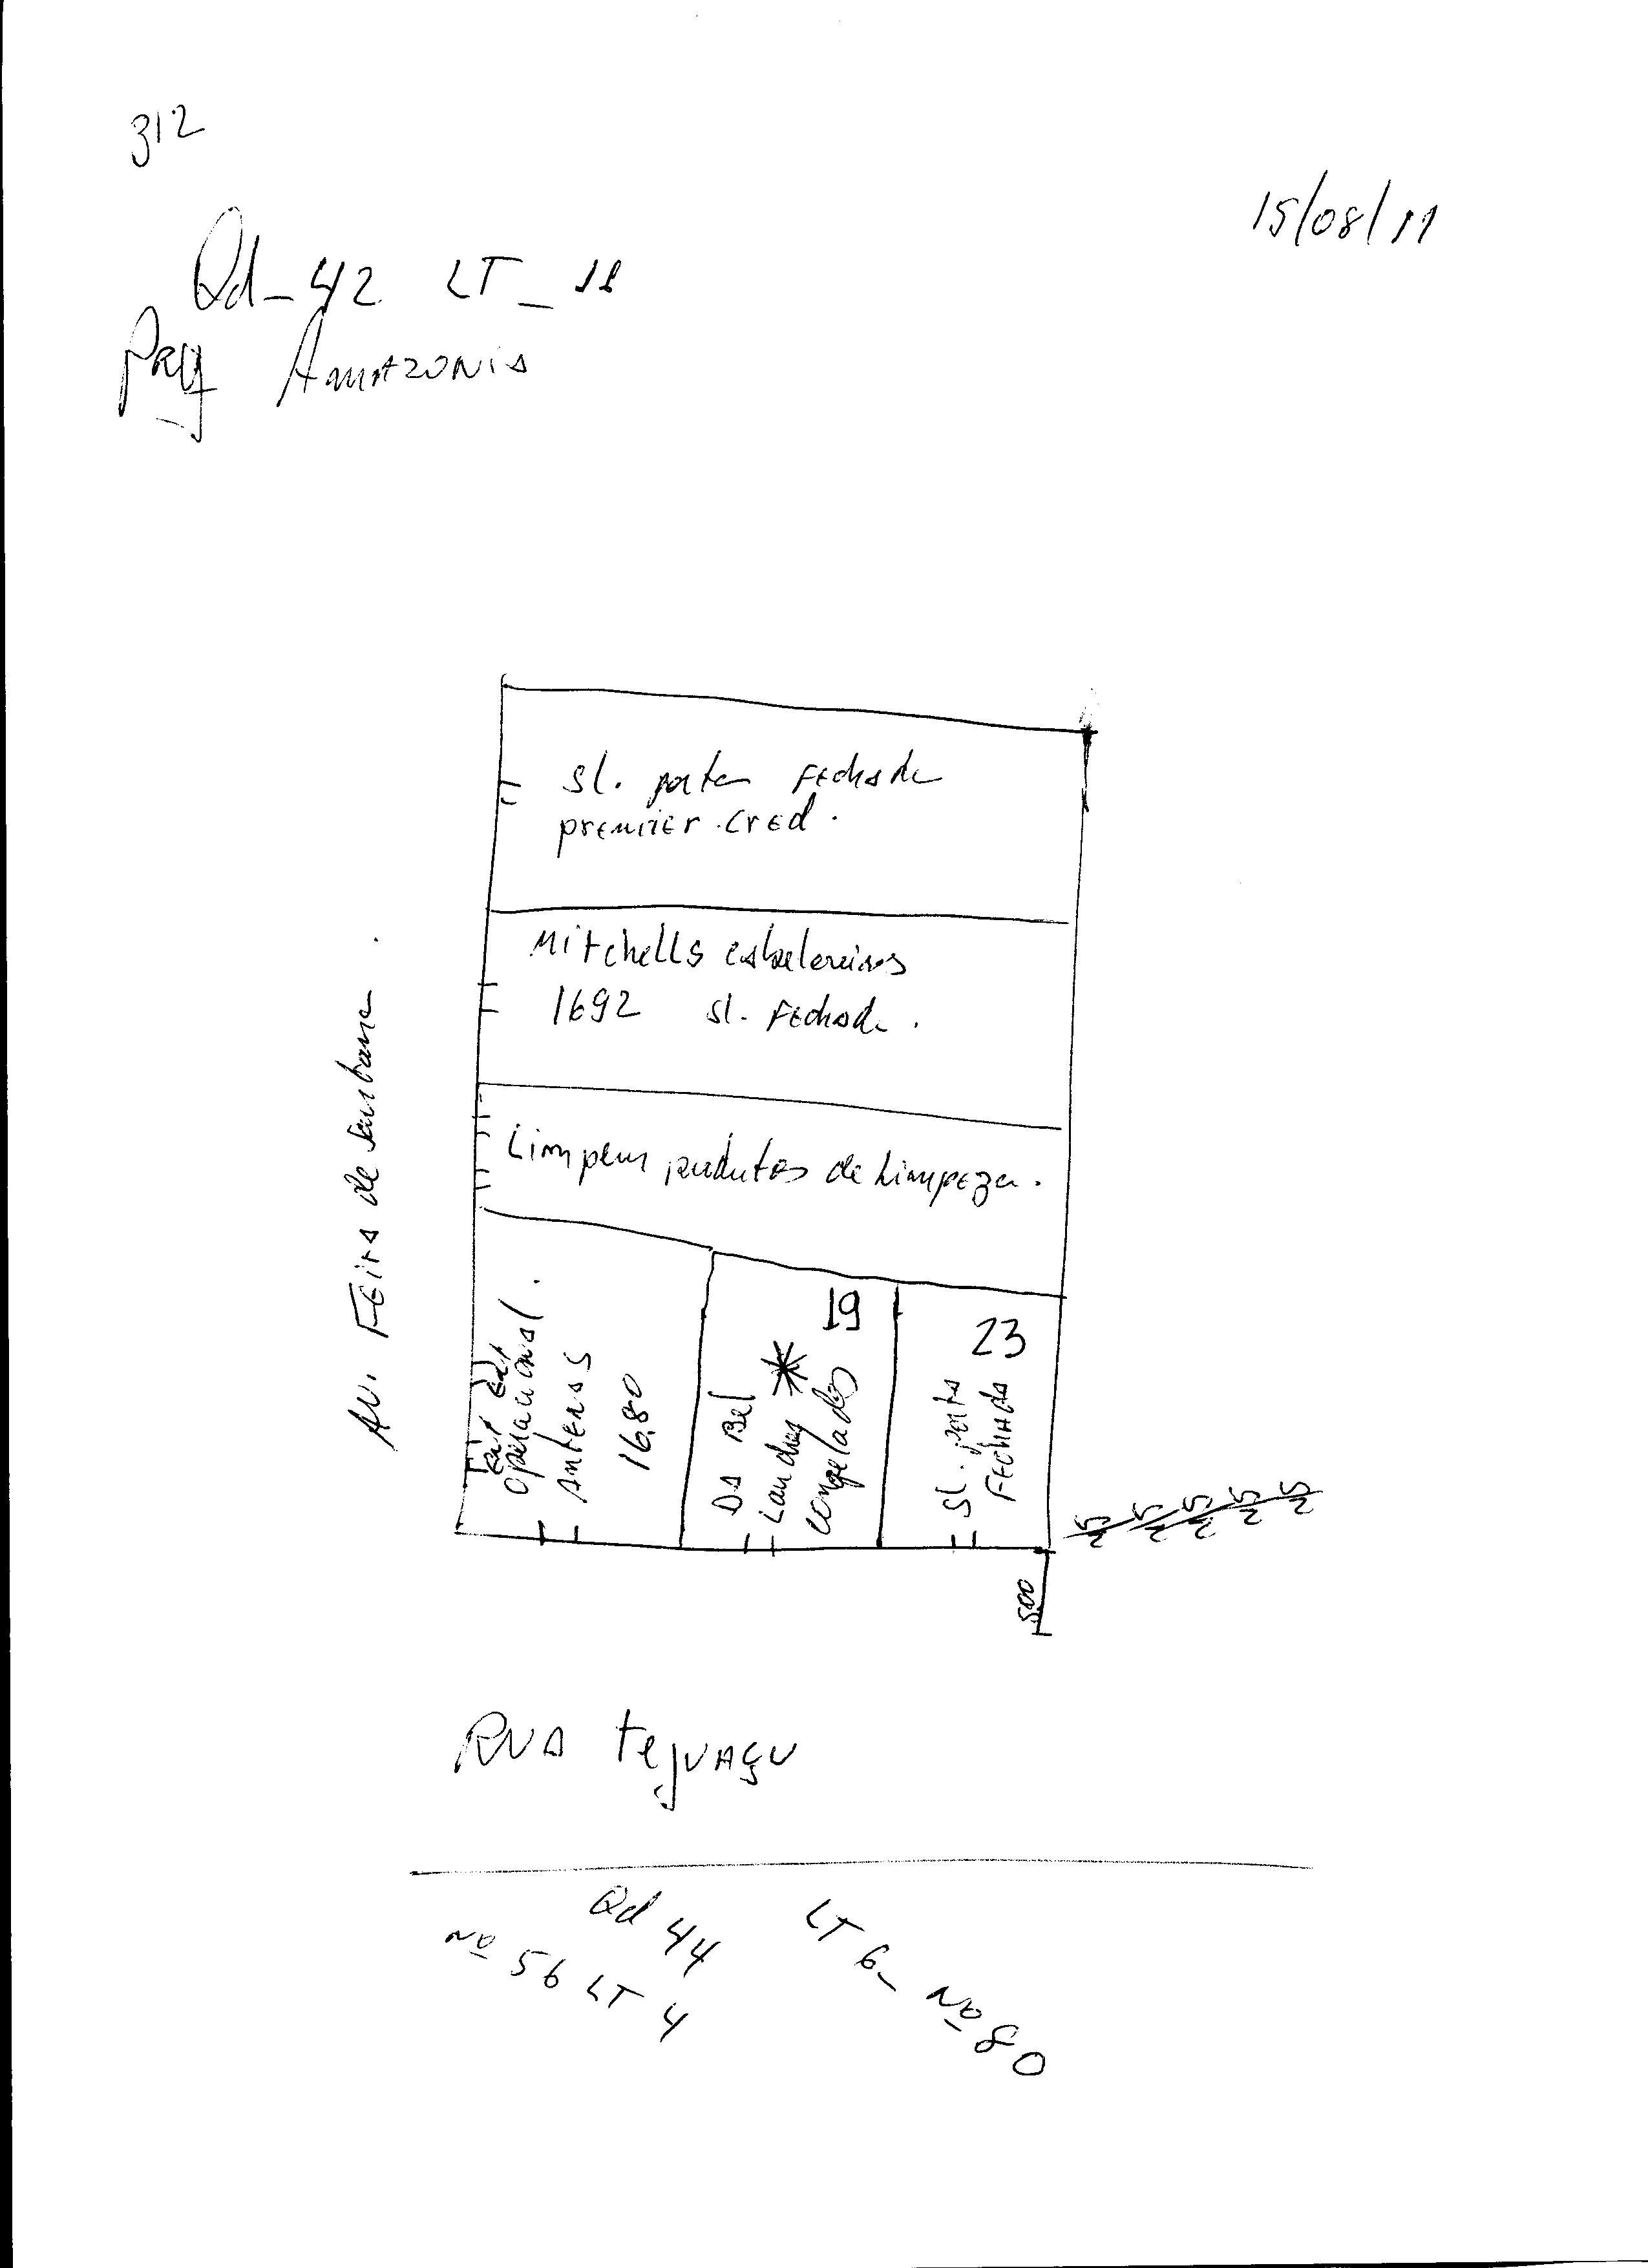 312
15/08/11
Qd-42 LT-11
Prq Amazonia
sl. porta Fechada
premier.cred.
Mitchells cabeleireiros
1692 sl. Fechada.
Limpem produtos de Limpeza.
Av. Feira de Santana.
operacional.
Antenas
1680
19
Da Bel
Lanches
congelados
23
sl. porta
Fechada
500
Rua tejuaçu
Qd 44
Nº 56 LT 4
LT 6- Nº 80